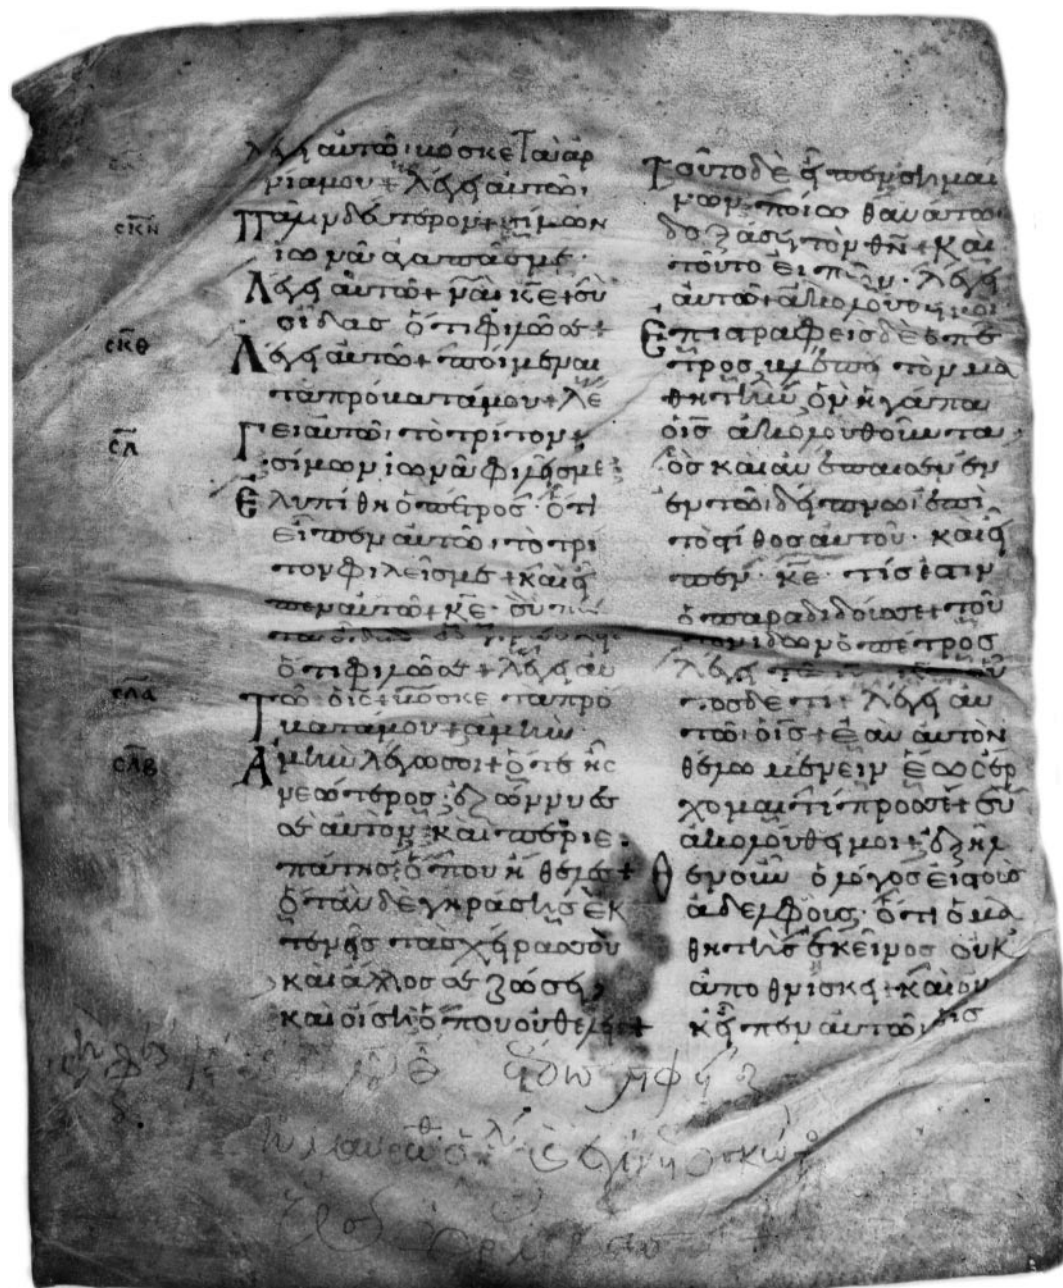 λέγει αὐτῶ· βόσκε τὰ ἀρ
νία μου + λέγει αὐτῶ·
σκη
πάλιν δεύτερον + σίμων
ἰωνᾶ ἀγαπᾶς με·
Λέγει αὐτῶ + ναὶ κε + σὺ
οἶδας ὅτι φιλῶ σε +
σκθ
Λέγει αὐτῶ + ποίμεναι
τὰ πρόβατά μου + λέ
σλ
Γει αὐτῶ· τὸ τρίτον +
σίμων ἰωνᾶ φιλεῖς με
Ἐλυπίθη ὁ πέτρος· ὅτι
εἶπεν αὐτῶ· τὸ τρί
τον φιλεῖς με + καὶ εἶ
πεν αὐτῶ + κε· σὺ
ὅτι φιλῶ σε + λέγει αὐ
σλα
τῶ ὁ ις + βόσκε τὰ πρό
βατά μου + ἀμὴν
σλβ
Ἀμὴν λέγω σοι + ὅτε ἦς
νεώτερος· ἐζώννυες
σεαυτὸν· καὶ περιε
πάτης ὅπου ἤθελες +
ὅταν δὲ γηράσης ἐκ
τενεῖς τὰς χεῖρας σου
καὶ ἄλλος σε ζώσει,
καὶ οἴσει ὅπου οὐ θέλεις +
Τοῦτο δὲ εἶπεν σημαί
νων· ποίω θανάτω
δοξάσει τὸν θν + καὶ
τοῦτο εἰπὼν· λέγει
αὐτῶ + ἀκολούθει μοι
Ἐπιστραφεὶς δὲ ὁ πέ
τρος βλέπει τὸν μα
θητὴν ὃν ἠγάπα
ὁ ις ἀκολουθοῦντα·
ὃς καὶ ἀνέπεσεν
ἐν τῶ δείπνω ἐπὶ
τὸ στῖθος αὐτοῦ· καὶ εἶ
πεν· κε· τίς ἐστιν
ὁ παραδιδούς σε + τοῦ
τον ἰδὼν ὁ πέτρος
λέγει
τος δὲ τί + λέγει αὐ
τῶ ὁ ις + ἐὰν αὐτὸν
θέλω μένειν ἕως ἔρ
χομαι τί πρὸς σέ + σὺ
ἀκολούθει μοι + ἐξῆλ
θεν οὖν ὁ λόγος εἰς τοὺς
ἀδελφούς· ὅτι ὁ μα
θητὴς ἐκεῖνος οὐκ
ἀποθνήσκει + καὶ οὐ
κ εἶπεν αὐτῶ ὁ ις